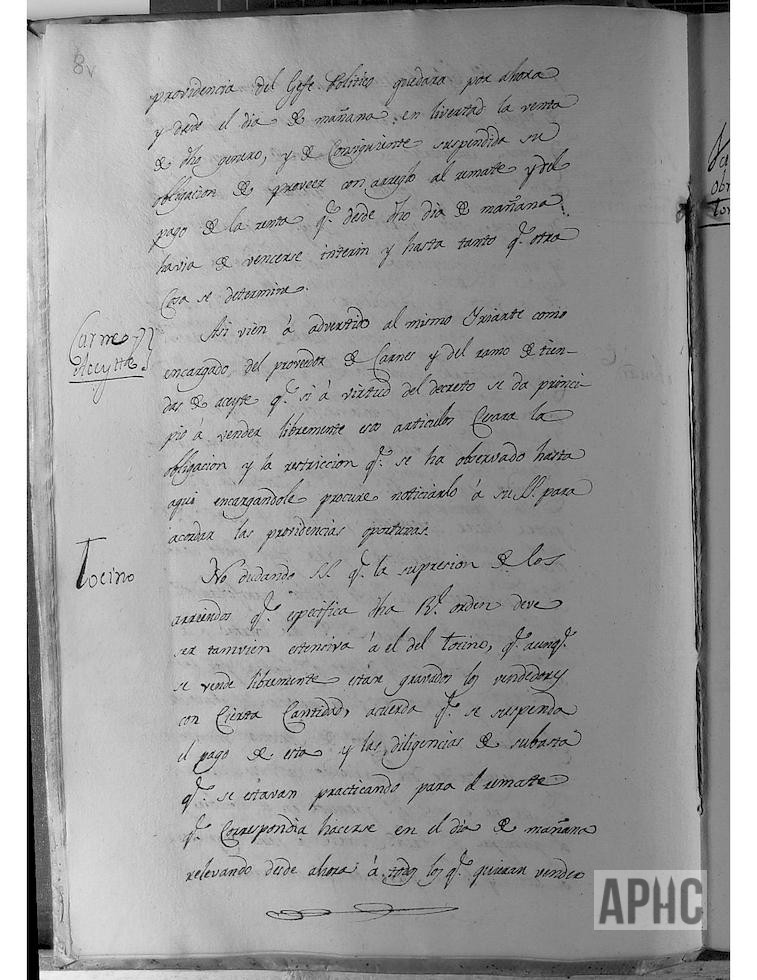 8v
providencia del Gefe Politico quedara por ahora
y desde el dia de mañana en livertad la venta
de dho genero, y de Consiguiente suspendida su
obligacion de proveer con arreglo al remate y del
pago de la renta q.e desde dho dia de mañana
havia de vencerse interin y hasta tanto q.e otra
Cosa se determine.
Carne y
Aceyte
Asi vien á advertir al mismo Yriarte como
encargado del proveedor de Carnes y del ramo de tien-
das de aceyte q.e si á virtud del decreto se da princi-
pio á vender libremente esos articulos Cesara la
obligacion y la restriccion q.e se ha observado hasta
aqui encargandole procure noticiarlo á su S.S. para
acordar las providencias oportunas.
Tocino
No dudando S.S. q.e la supresion de los
arriendos q.e especifica dha R.l orden deve
ser tamvien estensiva á el del Tocino, q.e aunq.e
se vende libremente estan gravados los vendedores
con Cierta Cantidad, acuerda q.e se suspenda
el pago de esta y las diligencias de subasta
q.e se estavan practicando para el remate
q.e Correspondia hacerse en el dia de mañana
relevando desde ahora á todos los q.e quieran vender
APHC